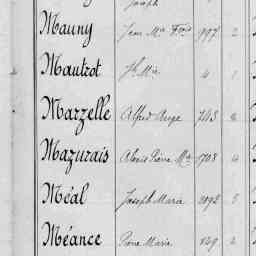 Joseph
Mauny Jean Mie Frois 997 2
Mautrot Jh Mie 4 1
Mazzelle Alfred Ange 743
Mazurais Alexis Pierre Mie 1708 4
Méal Joseph Marie 2092 5
Méance Pierre Marie 1249 2